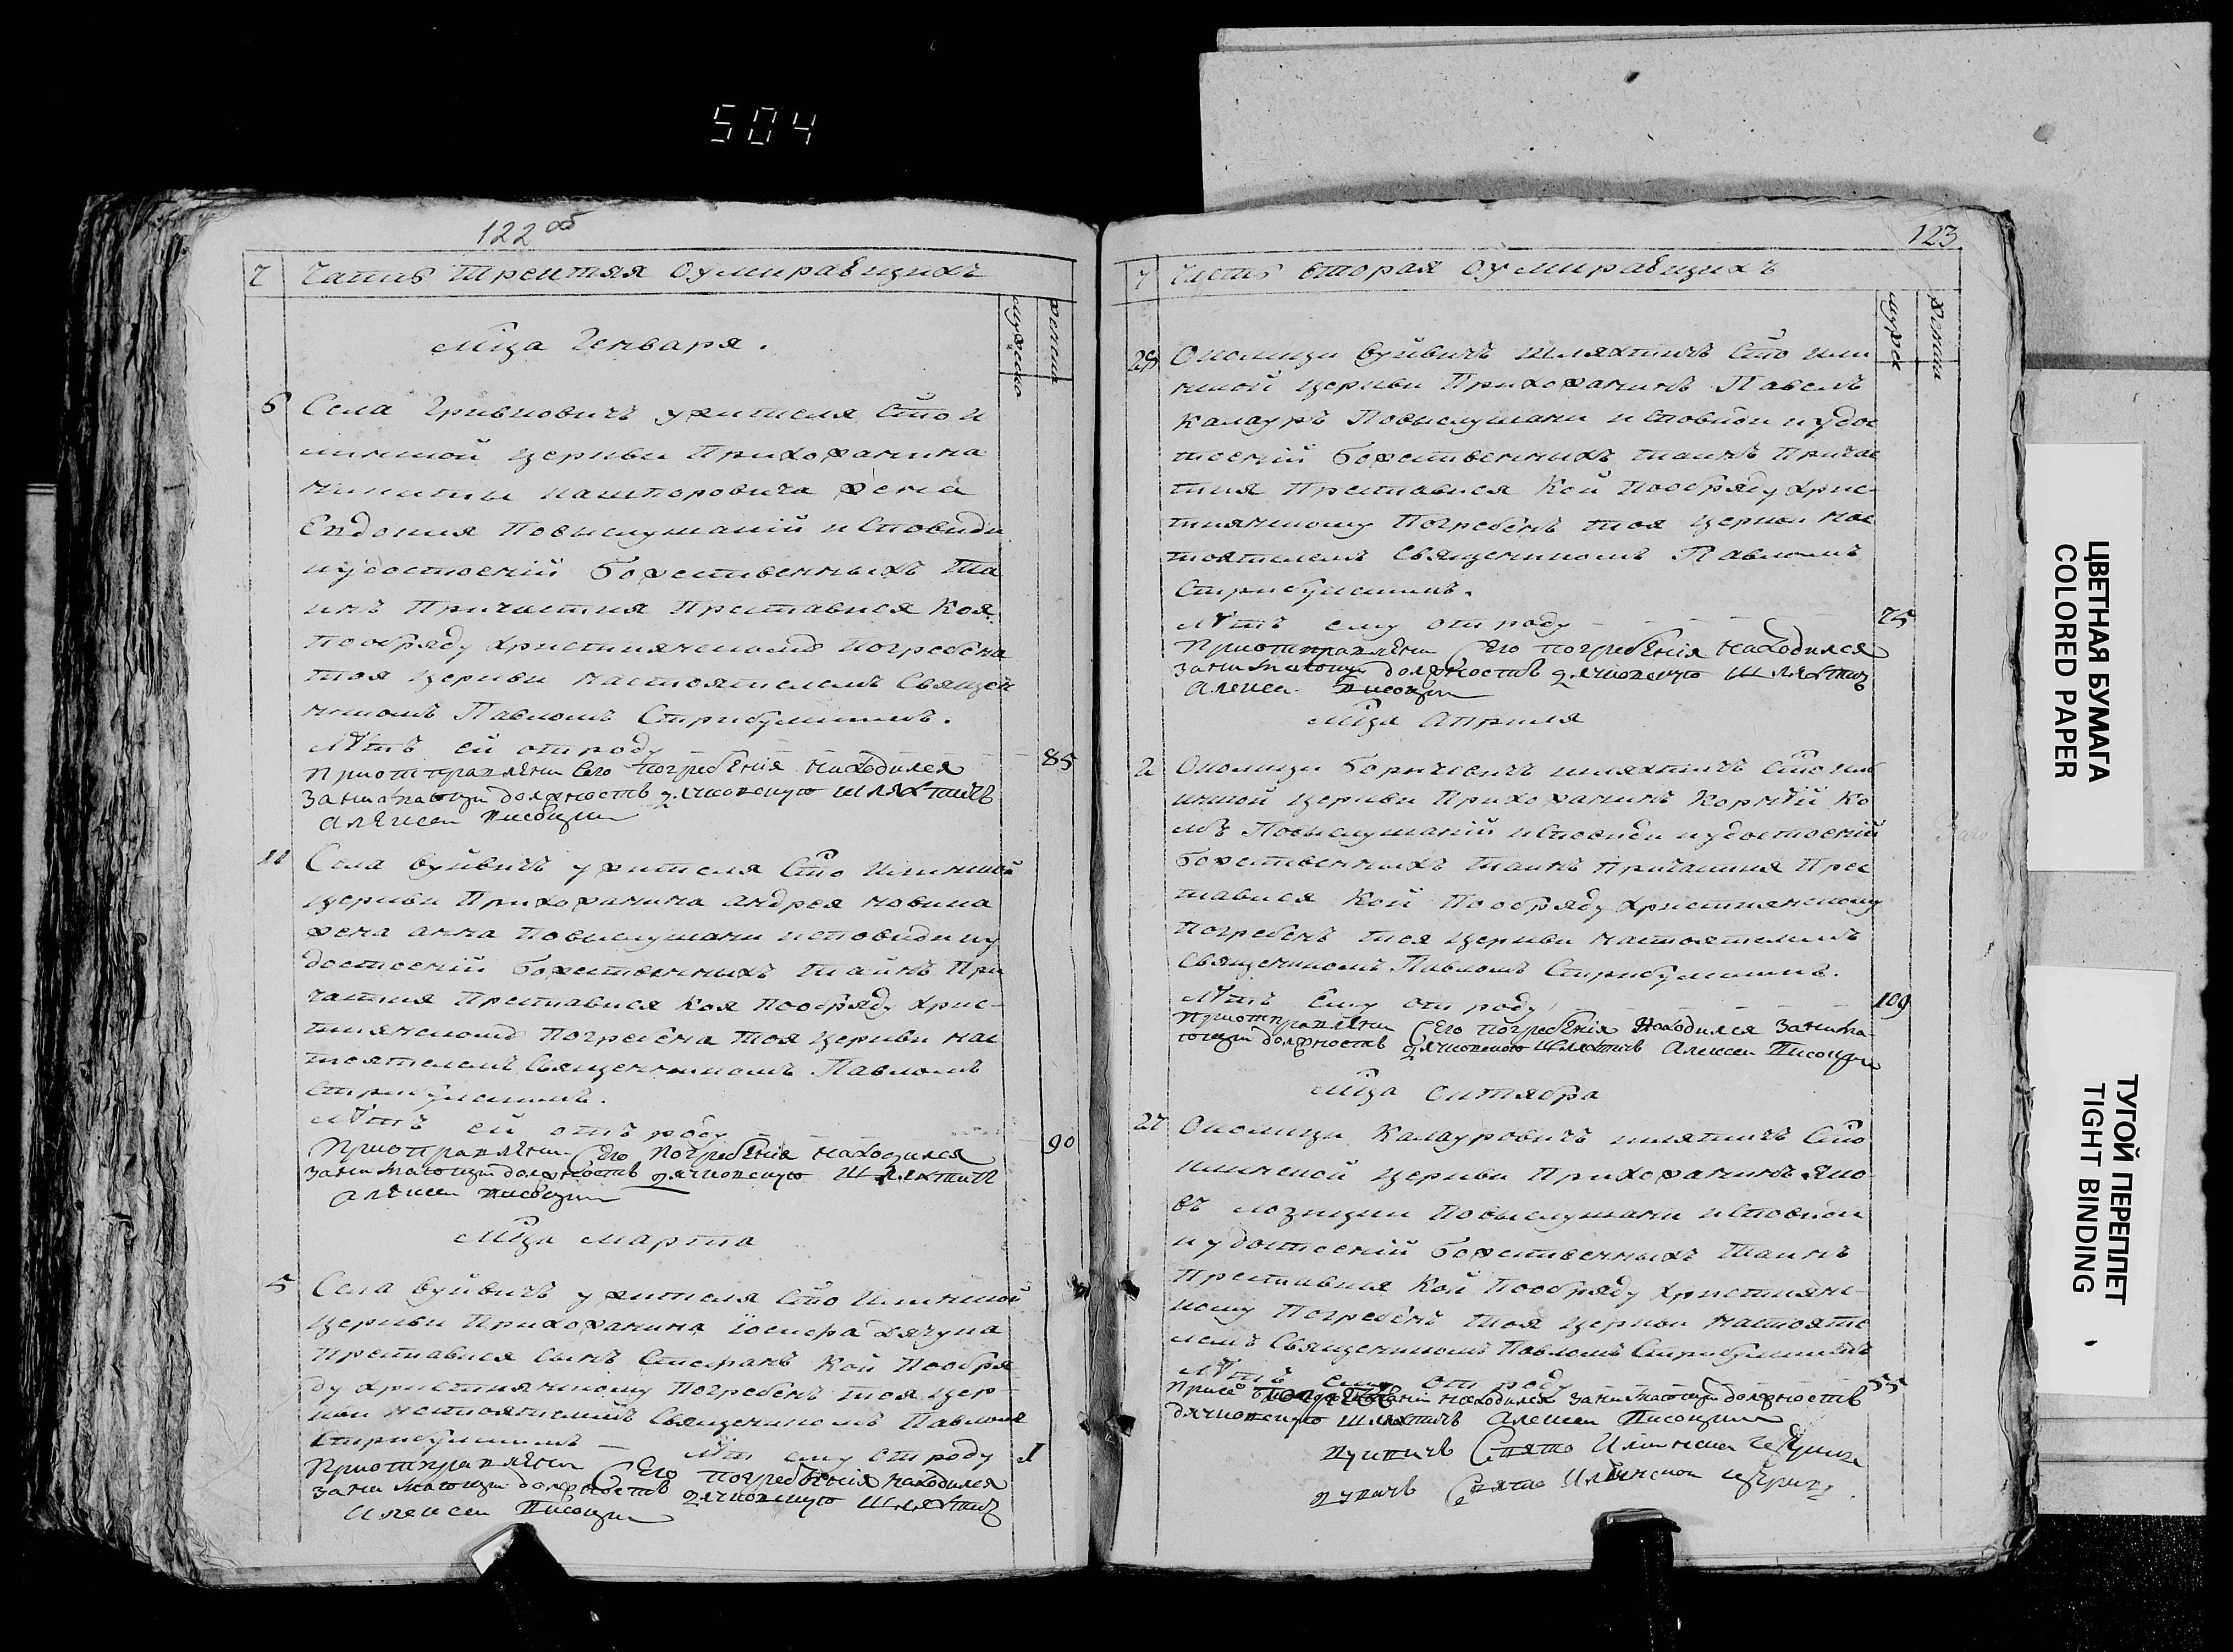 504
122 об
Часть Третяя О умиравщихъ
женска
мужеска
Мца Генваря.
6 Села Гривковичъ ужителя Сто И
линской Церкви Прихожанина
Никиты жена
Евдокия Повыслушаній исповиди
иудостоеній Божественныхъ Та
инъ Причастия Преставися Коя
пообряду християнскому погребена
тоя Церкви настоятелемъ Священ
никомъ Павломъ Стрибулскимъ.
Лѣтъ ей от роду 85
Приотправлени Сего Погребения находился
занимающи должность дячковскую шляхтичъ
Алексеи Писоцки
11 Села Буйвичъ ужителя Сто Илинской
Церкви Прихожанина Андрея Новика
жена анна Повыслушани исповиди иу
достоеній Божественныхъ Тайнъ При
частия Преставися Коя Пообряду Хрис-
тиянскому Погребена Тоя Церкви нас
тоятелемъ Священникомъ Павломъ
Стрибулскимъ.
Лѣтъ ей отъ роду 90
Приотправлени Сего Погребения находился
занимающи должность дячковскую Шляхтичъ
Алексеи Писоцки
Мца Марта
5 Села Буйвичъ ужителя Сто Илинской
Церкви Прихожанина Іосифа Дячука
Преставися сынъ Стефанъ Кой Пообря
ду християнскому Погребенъ тоя Цер-
кви настоятелемъ Священикомъ Павломъ
Стрибулскимъ Лѣт ему от роду 1
Приотправлени Сего погребения находился
занимающи должность дячковскую шляхтич
Алексеи Писоцки
123
Часть вторая О умиравщихъ
мужск
женска
28 Околицы Буйвичъ шляхтичъ Сто Или
нской Церкви Прихожанинъ Павелъ
Калауръ Повыслушани исповиди иудос
тоеній Божественныхъ таинъ Причас
тия Преставися Кой Пообряду Хрис-
тиянскому Погребенъ тоя Церкви нас
тоятелемъ Священикомъ Павломъ
Стрибулскимъ.
Лѣтъ ему от роду 75
Приотправлени Сего погребения находился
занимающи должность дячковскую шляхтич
Алексеи Писоцки
Мца Априля
2 Околицы Борычевичъ шляхтичъ Сто Или
нской Церкви Прихожанинъ Корнѣй Ко
Повыслушаній исповиди иудостоеній
Божественныхъ таинъ Причастия Прес
тавися Кой Пообряду Християнскому
Погребенъ тоя Церкви настоятелемъ
Священикомъ Павломъ Стрибулскимъ.
Лѣтъ Ему от роду 109
Приотправлени Сего погребения находился занима
ющи должность дячковскую шляхтичъ Алексеи Писоцки
Мца Октября
27 Околицы Калауровичъ шляхтичъ Сто
Илинской Церкви Прихожанинъ Яко
въ Лозицки Повыслушани исповиди
иудостоеній Божественныхъ Таинъ
Преставися Кой Пообряду Християнс-
кому Погребенъ Тоя Церкви настояте
лемъ Священикомъ Павломъ Стрибулскимъ
Лѣтъ ему от роду 55
При находился занимающи должность
дячковскую шляхтичъ Алексеи Писоцки
Свято Илинскои
Свято Илинскои
ЦВЕТНАЯ БУМАГА
COLORED PAPER
ТУГОЙ ПЕРЕПЛЕТ
TIGHT BINDING